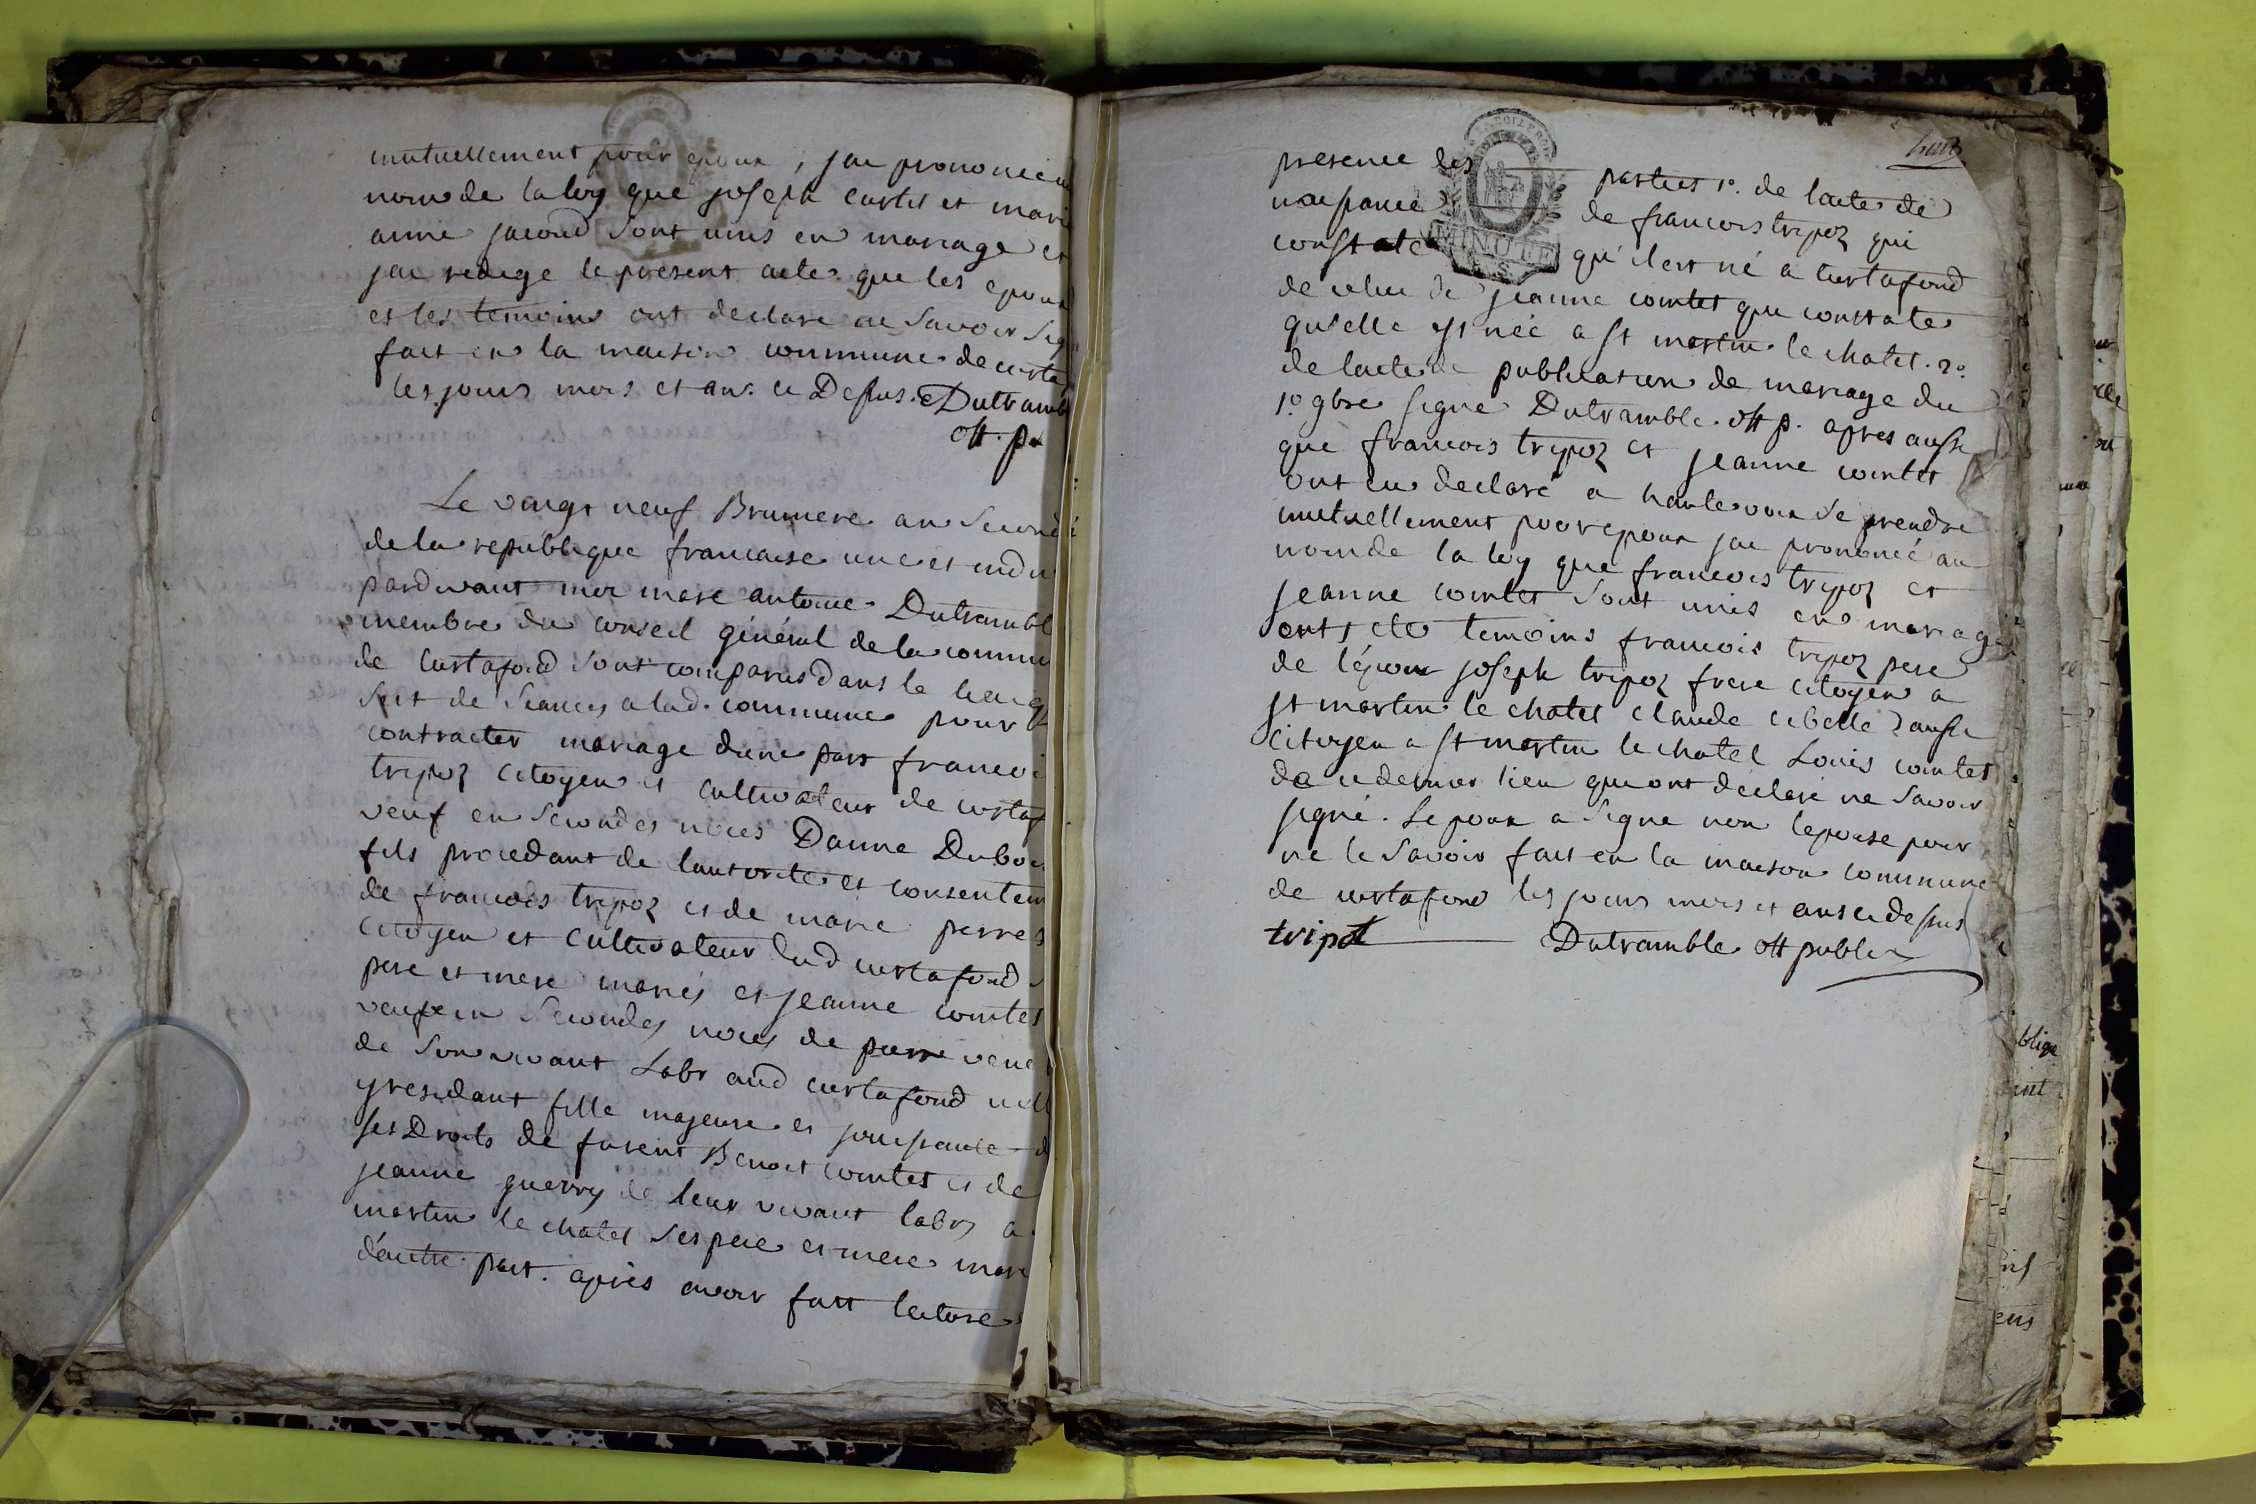 mutuellement pour epoux, jai prononcé au
nom de la loy que joseph curtet et mari
anne jacoud sont unis en mariage et
jai redige le present acte que les epoux
et les temoins ont declare ne savoir sign
fait en la maison commune de curta
les jours mois et an. ci Dessus. Dutrambl
off. p.
Le vingt neuf Brumere an second
de la republique francaise une et indiv
pardevant moi marc antoine Dutrambl
membre du conseil général de la commu
de Curtafond sont comparus dans le lieu q
sert de seances a lad. commune pour
contracter mariage dune part francoi
tripoz citoyen et cultivateur de curtaf
veuf en secondes noces Danne Duboi
fils procedant de lautorite et consentem
de francois tripoz et de marie perret
citoyen et cultivateur dud curtafond
pere et mere mariés et jeanne comtet
veuve en secondes noces de pierre vene
de son vivant Labr aud curtafond
y residant fille majeure et jouissante d
ses Droits de furent Benoit comtet et de
jeanne guerry de leur vivant labrs a
martin le chatel ses pere et mere mari
dautre part. après avoir fait lecture
huit
presence les parties 1º. de lacte de
naissance de francois tripoz qui
constate qu'il est né a curtafond
de celui de jeanne comtet que constate
qu'elle est née a st martin le chatel. 2º.
de lacte de publication de mariage du
1º 9bre signé Dutramble. off p. apres aussi
que francois tripoz et jeanne comtet
ont eu declaré a haute voix se prendre
mutuellement pour epoux jai prononcé au
nom de la loy que francois tripoz et
jeanne comtet sont unis en mariage
ont été temoins francois tripoz pere
de l'époux joseph tripoz frere citoyen a
st martin le chatel claude cibelle aussi
citoyen a st martin le chatel Louis comtet
de ce dernier lieu qui ont declaré ne savoir
signé. Lepoux a signé non lepouse pour
ne le savoir fait en la maison commune
de curtafond les jours mois et ans ci dessus
tripot Dutramble off public